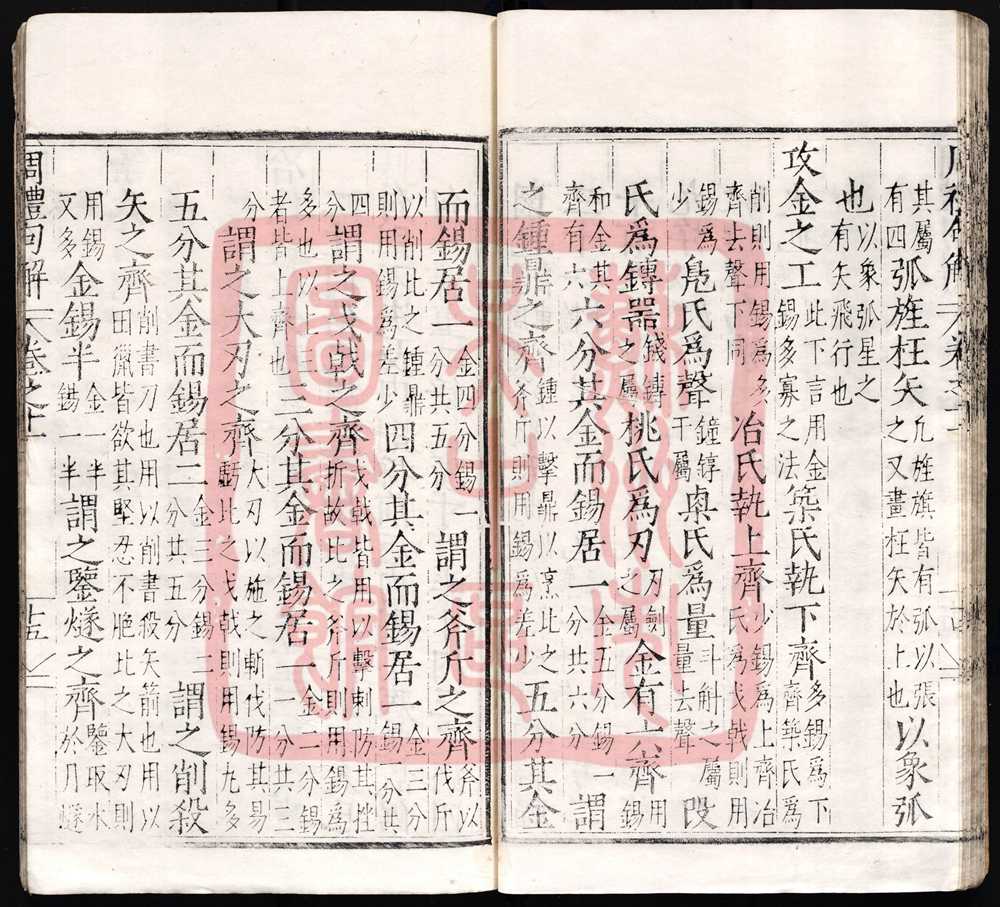 其屬有四弧旌枉矢凡旌旗皆有弧以張之又畫枉矢於上也以象弧
也以象弧星之也有矢飛行也
攻金之工此下言用金錫多寡之法築氏執下齊多錫為下齊築氏為
削則用錫為多齊去聲下同冶氏執上齊少錫為上齊冶氏為戈戟則用
錫為少鳧氏爲聲鐘錞干屬㮚氏爲量斗斛之屬量去聲段
氏爲鎛器錢鎛之屬桃氏爲刃刃劍之屬金有六齊用錫
和金其齊有六六分其金而錫居一金五分錫一分共六分謂
之鍾鼎之齊鍾以擊鼎以烹比之斧斤則用錫爲差少五分其金
而錫居一金四分錫一分共五分謂之斧斤之齊斧以伐斤
以削比之鍾鼎則用錫爲差少四分其金而錫居一金三分錫一分共
四分謂之戈戟之齊戈戟皆用以擊刺防其挫折故比之斧斤則用錫爲
多也以上三者皆上齊也三分其金而錫居一金二分錫一分共三
分謂之大刃之齊大刃以施之斬伐防其易比之戈戟則用錫尤多
五分其金而錫居二金三分錫二分共五分謂之削殺
矢之齊削書刀也用以削書殺矢箭也用以田獵皆欲其堅忍不脃比之大刃則
用錫又多金錫半金一半錫一半謂之鑒燧之齊鑒取水於月燧
周禮句解 卷之十一 十五